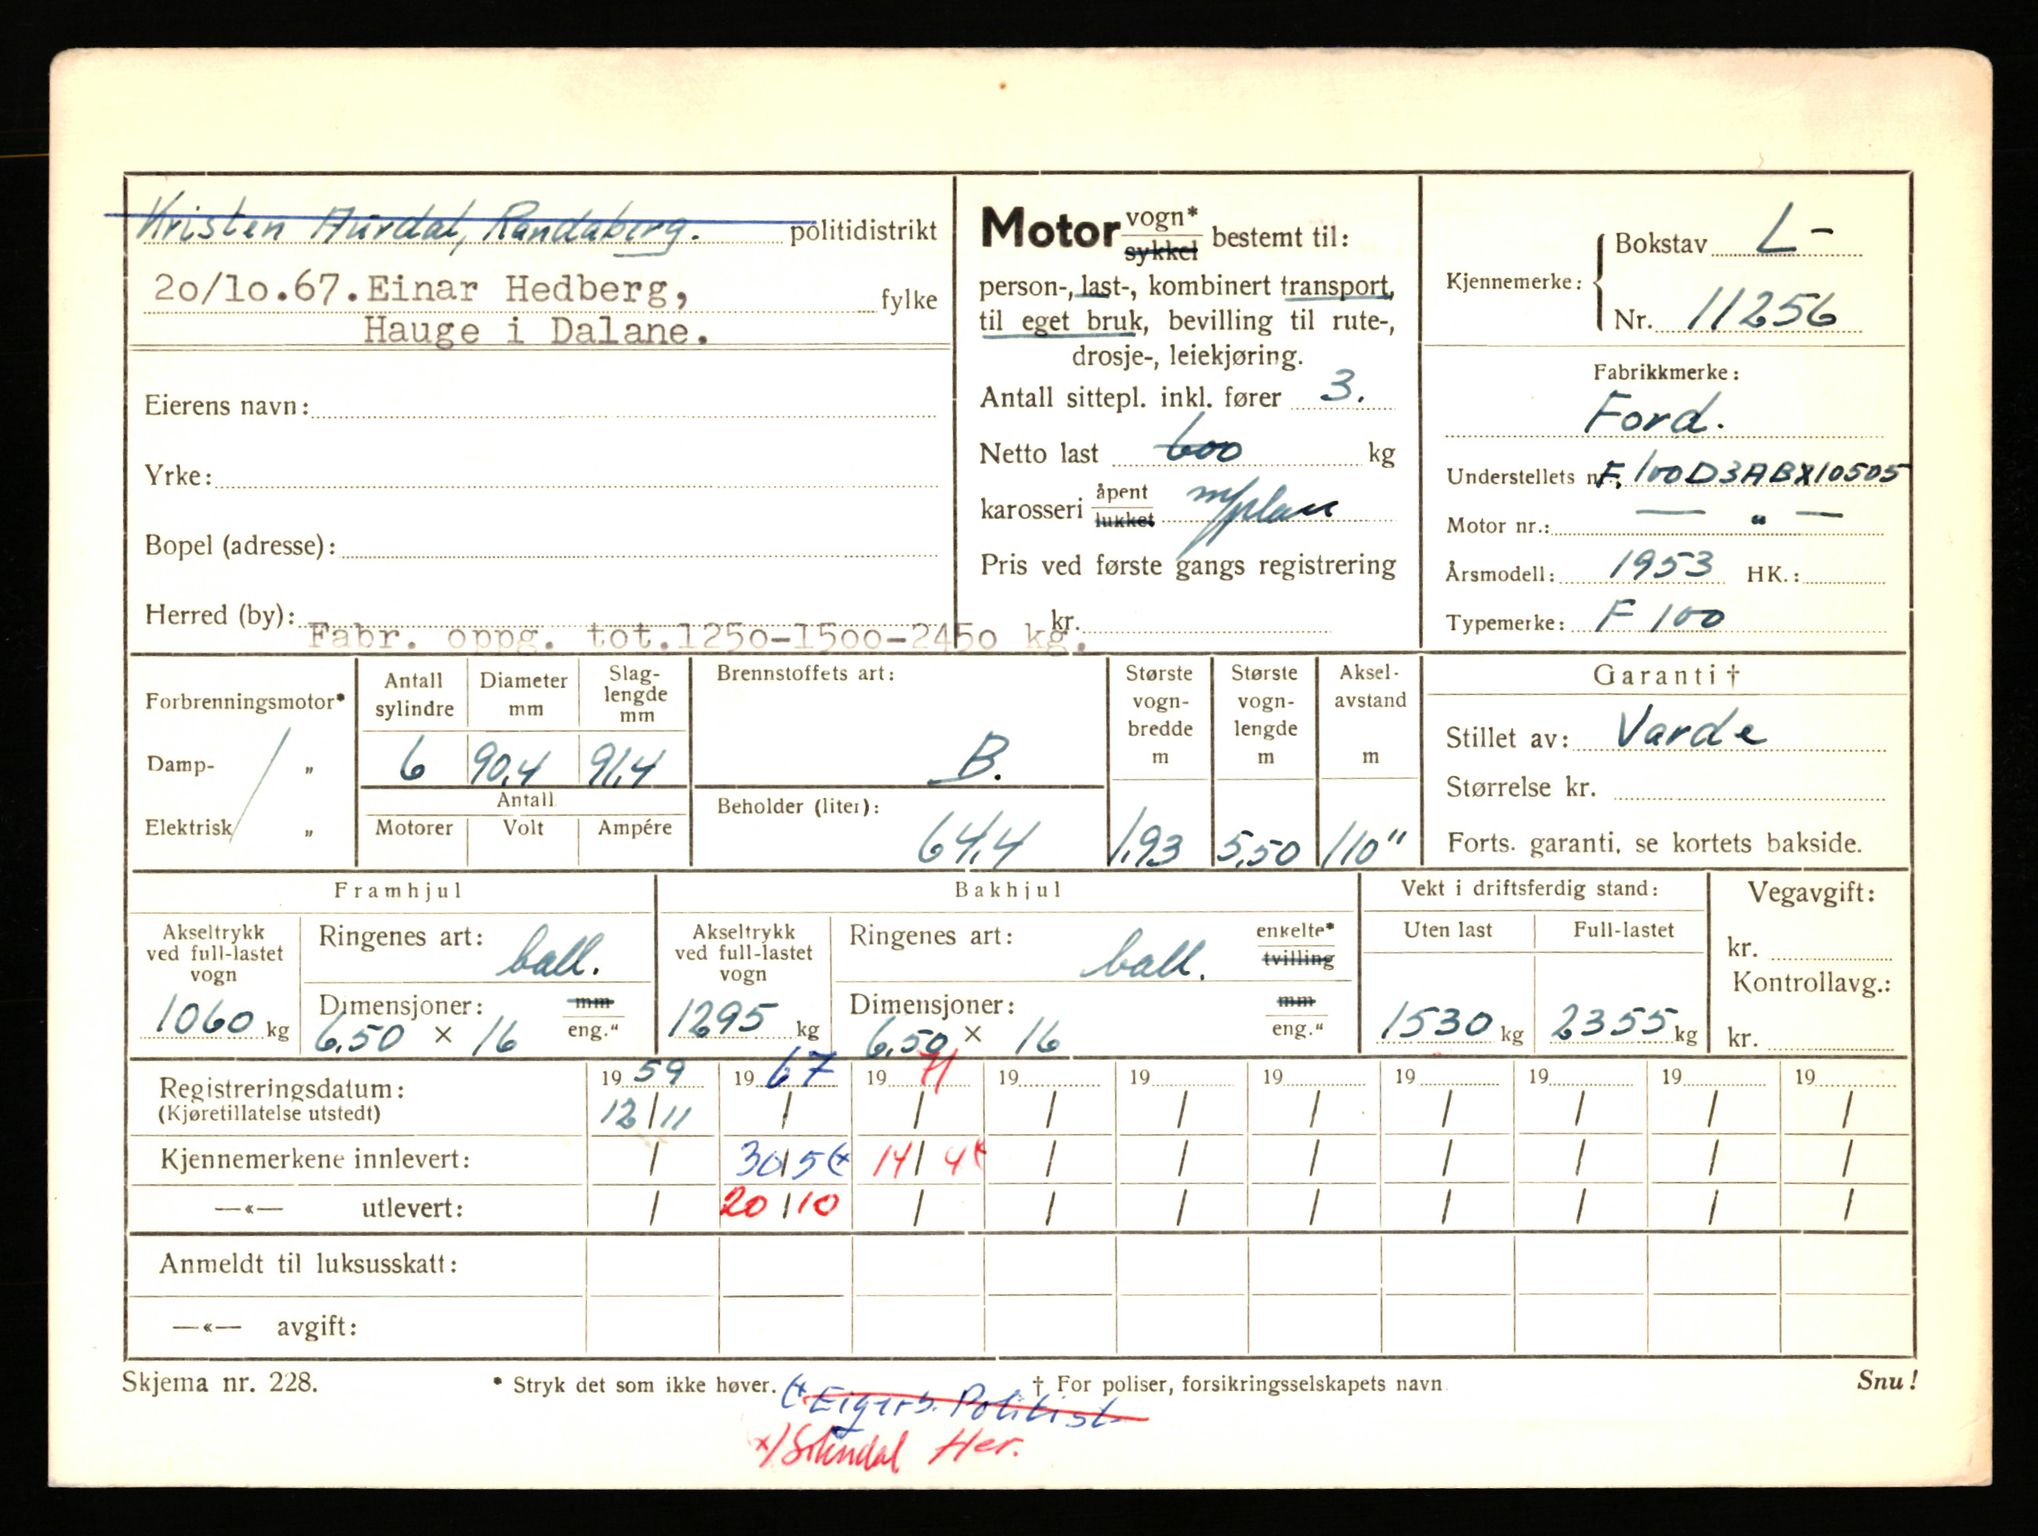 Kristen Aurdal, Randaberg. politidistrikt
20/10.67. Einar Hedberg, fylke
Hauge i Dalane.
Eierens navn:
Yrke:
Bopel (adresse):
Herred (by):
Fabr. oppg. tot.1250-1500-2450 kg.
Motor vogn* sykkel bestemt til:
person-, last-, kombinert transport,
til eget bruk, bevilling til rute-,
drosje-, leiekjøring.
Antall sittepl. inkl. fører 3.
Netto last 600 kg
karosseri åpent lukket m/plan
Pris ved første gangs registrering
kr.
Kjennemerke: Bokstav L-
Nr. 11256
Fabrikkmerke:
Ford.
Understellets nr. F.100D3ABX10505
Motor nr.: — " —
Årsmodell: 1953 HK.:
Typemerke: F 100
Forbrenningsmotor*
Damp- „
Elektrisk „
Antall sylindre 6
Diameter mm 90,4
Slaglengde mm 91,4
Antall
Motorer Volt Ampére
Brennstoffets art:
B.
Beholder (liter):
64,4
Største vognbredde m 1,93
Største vognlengde m 5,50
Akselavstand m 110"
Garanti †
Stillet av: Varde
Størrelse kr.
Forts. garanti, se kortets bakside.
Framhjul
Akseltrykk ved full-lastet vogn 1060 kg
Ringenes art: ball.
Dimensjoner: mm
6,50 × 16 eng."
Bakhjul
Akseltrykk ved full-lastet vogn 1295 kg
Ringenes art: ball. enkelte* tvilling
Dimensjoner: mm
6,50 × 16 eng."
Vekt i driftsferdig stand:
Uten last 1530 kg
Full-lastet 2355 kg
Vegavgift:
kr.
Kontrollavg.:
kr.
19 59 19 67 19 71 19 19 19 19 19 19 19
Registreringsdatum: (Kjøretillatelse utstedt) 12/11 / / / / / / / / /
Kjennemerkene innlevert: / 30/5 (x 14/4 (x / / / / / / /
—«— utlevert: / 20/10 / / / / / / / /
Anmeldt til luksusskatt:
—«— avgift:
Skjema nr. 228. * Stryk det som ikke høver. † For poliser, forsikringsselskapets navn Snu!
(x. Eigers. Politist
x) Sokndal Her.